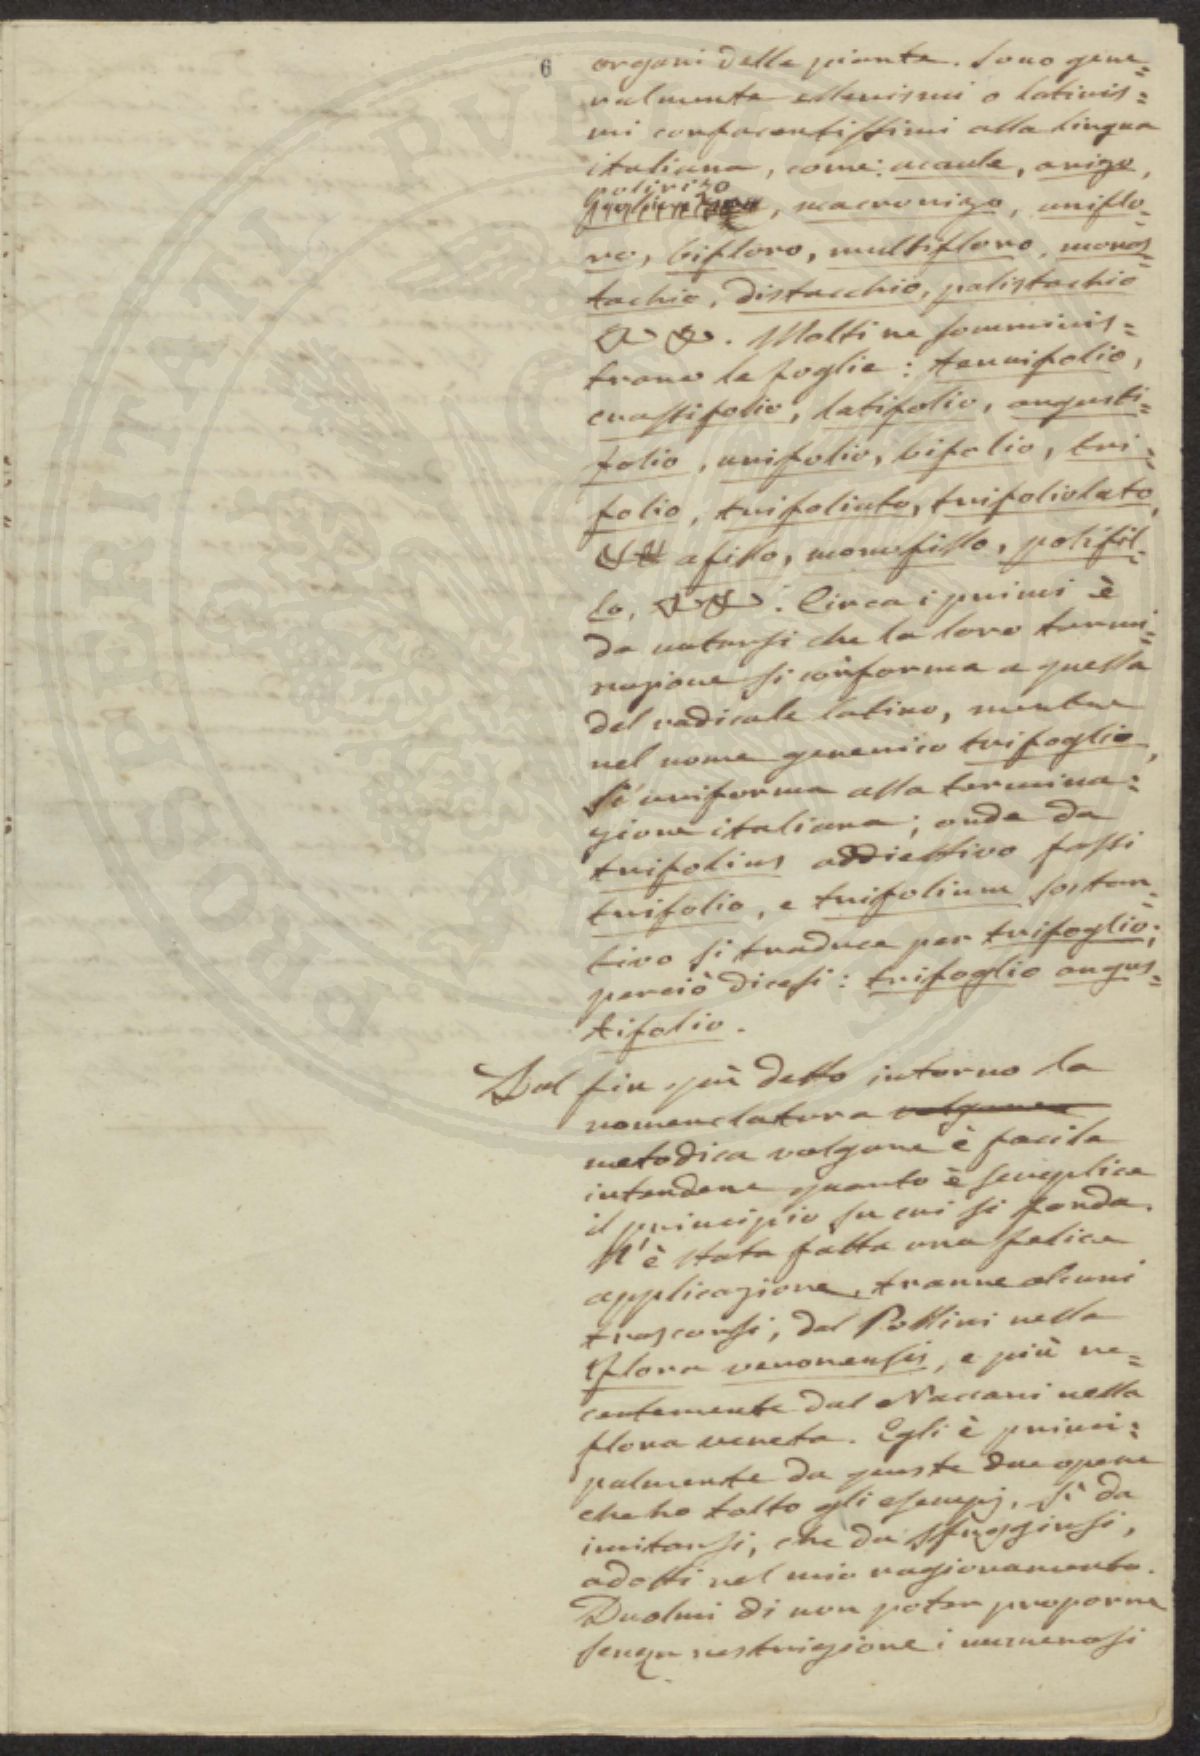 6
organi delle piante. Sono gene=
ralmente ellenismi o latinis=
mi confacentissimi alla lingua
italiana, come: acaule, arizo,
polirizo
, macrorizo, uniflo=
ro, bifloro, multifloro, monos=
tachio, distacchio, polistachio
&c &c. Molti ne somminis=
trano le foglie: tenuifolio,
crassifolio, latifolio, angusti=
folio, unifolio, bifolio, tri=
folio, trifoliato, trifoliolato,
afillo, monofillo, polifil=
lo, &c &c. Circa i primi è
da notarsi che la loro termi=
nazione si conforma a quella
del radicale latino, mentre
nel nome generico trifoglio,
si uniforma alla termina=
zione italiana; onde da
trifolius addiettivo fassi
trifolio, e trifolium sostan=
tivo si traduce per trifoglio;
perciò dicesi: trifoglio angus=
tifolio.
Dal fin quì detto intorno la
nomenclatura volgare
metodica volgare è facile
intendere quanto è semplice
il principio su cui si fonda.
N'è stata fatta una felice
applicazione, tranne alcuni
trascorsi, dal Pollini nella
Flora veronensis, e più re=
centemente dal Naccari nella
flora veneta. Egli è princi=
palmente da queste due opere
che ho tolto gli esempj, sì da
imitarsi, che da sfuggirsi,
adotti nel mio ragionamento.
Duolmi di non poter proporre
senza restrizione i numerosi
PROSPERITATI PVBLIC